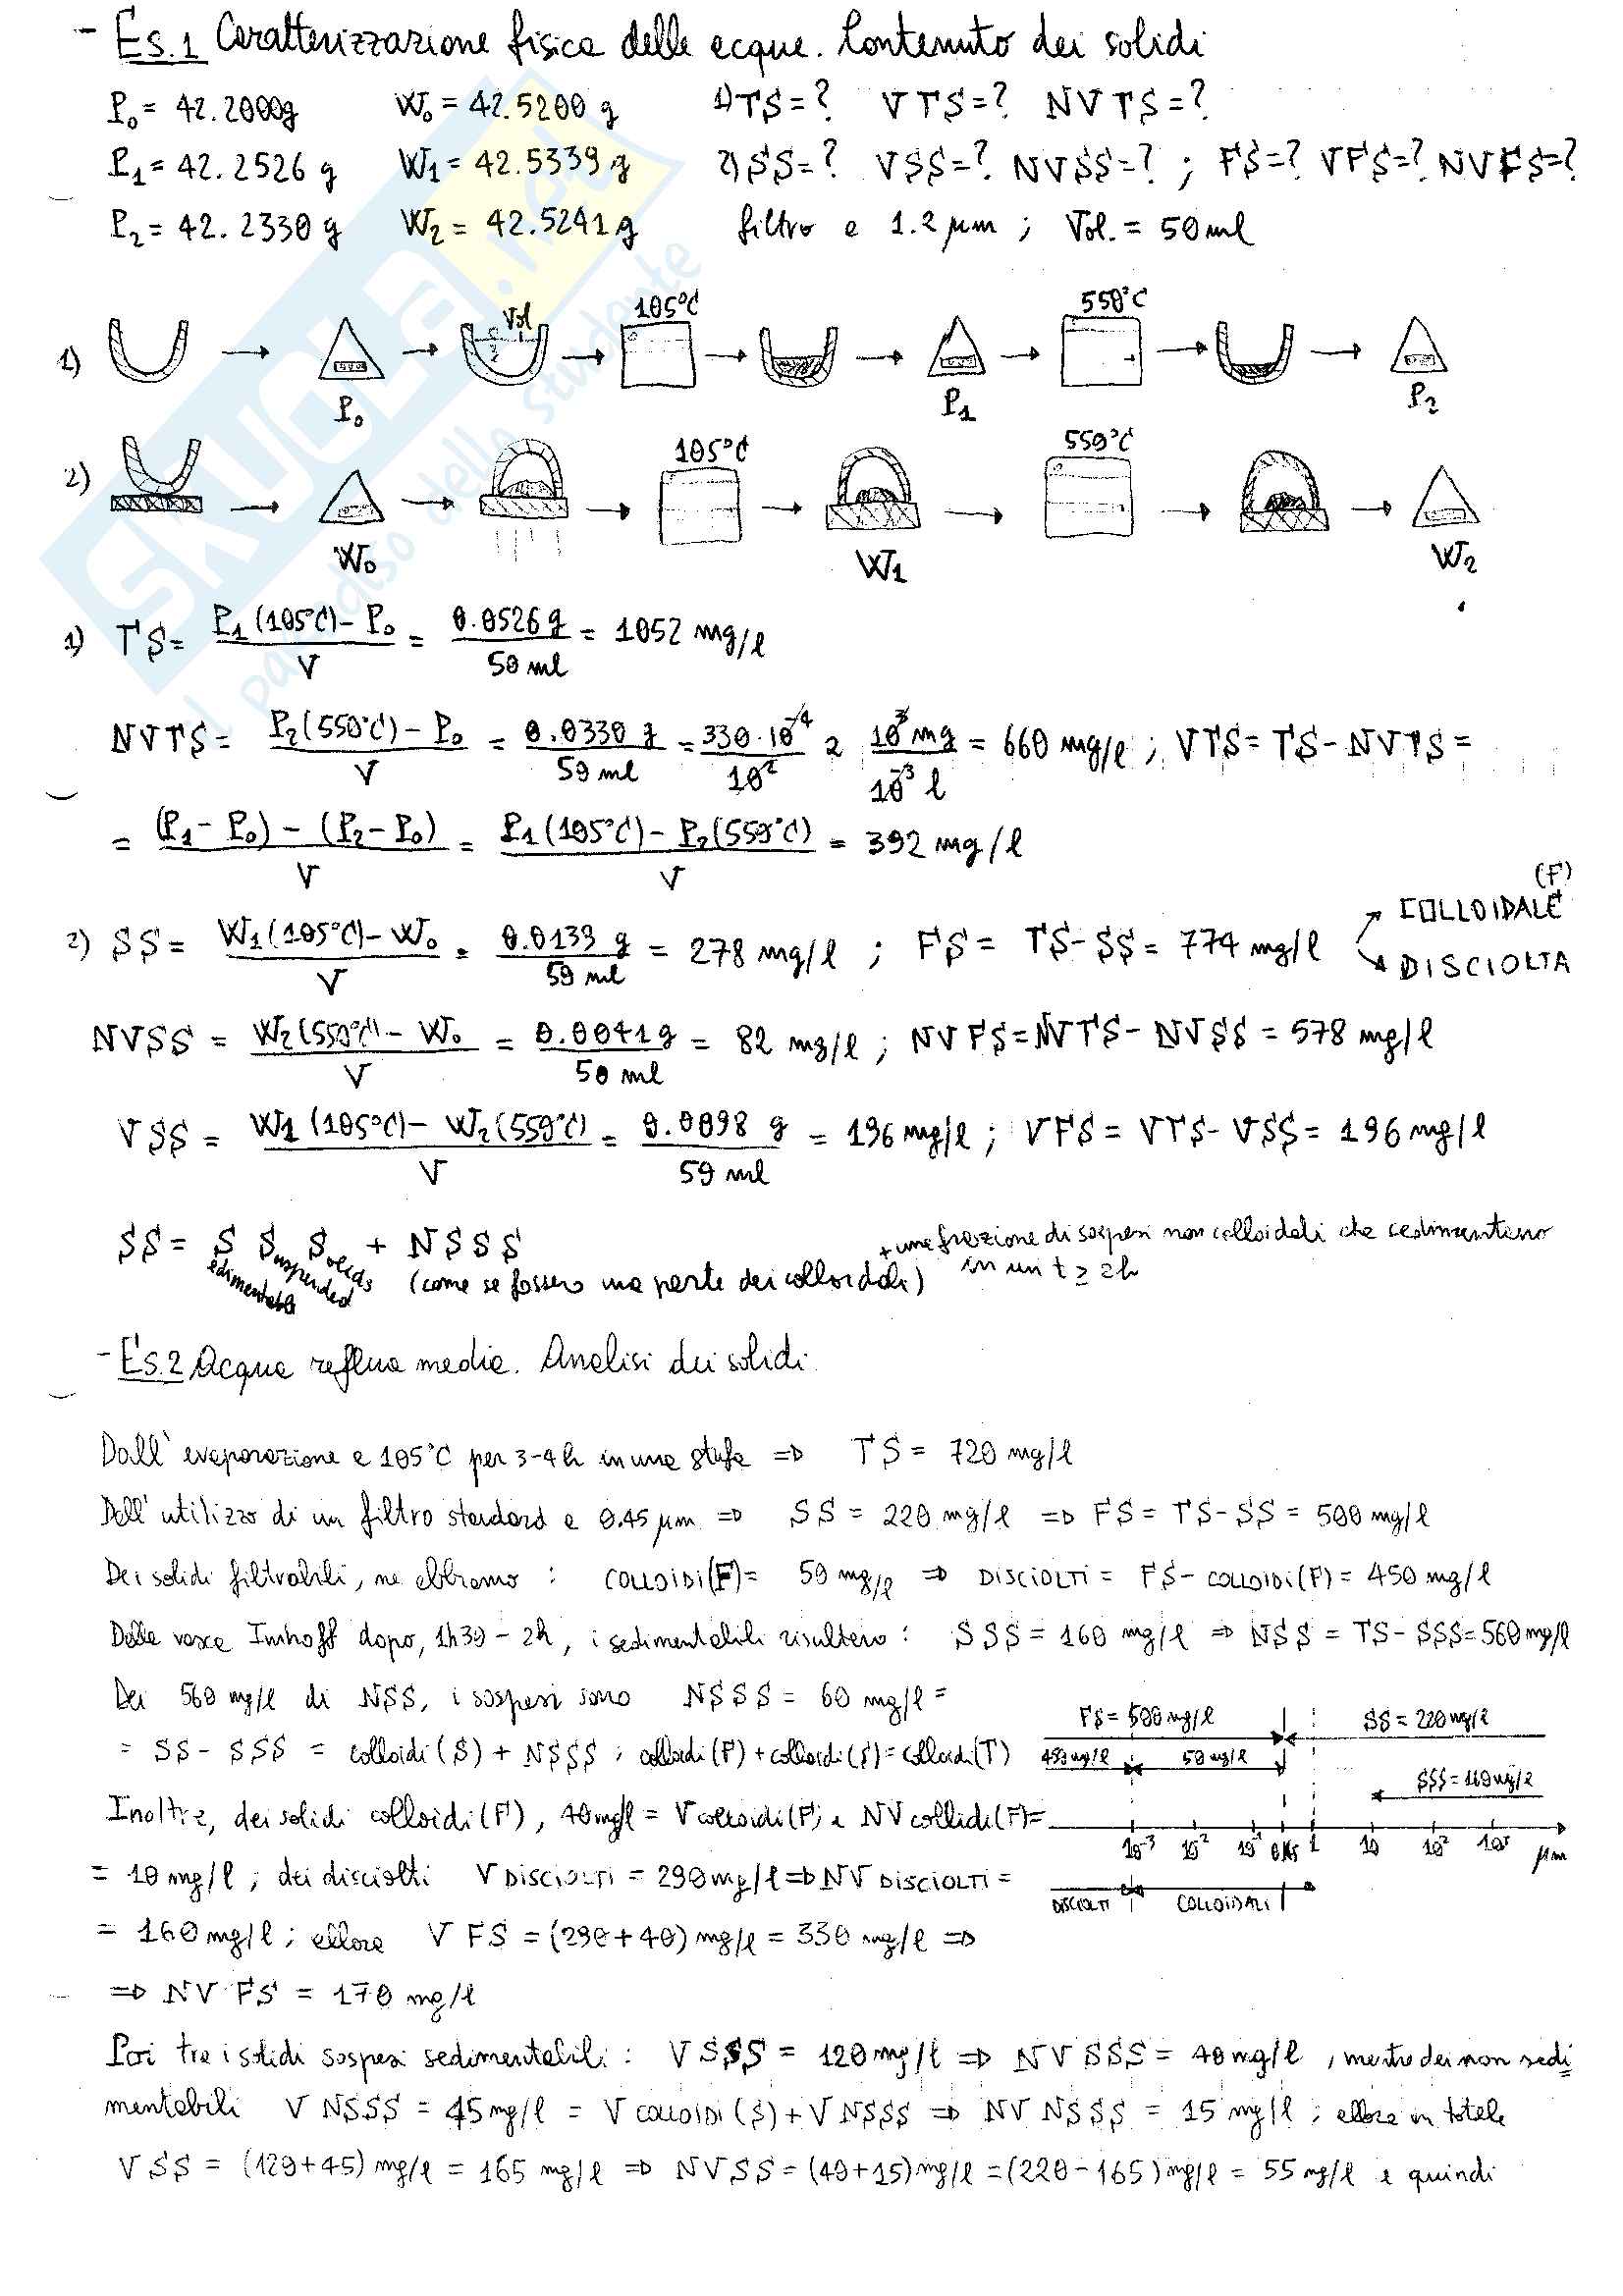 - Es.1 Caratterizzazione fisica delle acque. Contenuto dei solidi
P₀ = 42.2000g W₀ = 42.5200 g 1) TS=? VTS=? NVTS=?
P₁ = 42.2526 g W₁ = 42.5339 g 2) SS=? VSS=? NVSS=? ; FS=? VFS=? NVFS=?
P₂ = 42.2330 g W₂ = 42.5241 g filtro a 1.2 μm ; Vol. = 50 ml
SKUOLA.net
il paradiso dello studente
1) Vol 105°C 550°C
P₀ P₁ P₂
2) 105°C 550°C
W₀ W₁ W₂
1) TS = P₁(105°C) - P₀ / V = 0.0526 g / 50 ml = 1052 mg/l
NVTS = P₂(550°C) - P₀ / V = 0.0330 g / 50 ml = 330·10⁻⁴ / 10² 2 10³ mg / 10⁻³ l = 660 mg/l ; VTS = TS - NVTS =
= (P₁ - P₀) - (P₂ - P₀) / V = P₁(105°C) - P₂(550°C) / V = 392 mg/l
2) SS = W₁(105°C) - W₀ / V = 0.0139 g / 50 ml = 278 mg/l ; FS = TS - SS = 774 mg/l COLLOIDALE (F) DISCIOLTA
NVSS = W₂(550°C) - W₀ / V = 0.0041 g / 50 ml = 82 mg/l ; NVFS = NVTS - NVSS = 578 mg/l
VSS = W₁(105°C) - W₂(550°C) / V = 0.0098 g / 50 ml = 196 mg/l ; VFS = VTS - VSS = 196 mg/l
SS = S Suspended Solids + NSSS + una frazione di sospesi non colloidali che sedimentano
edimentabli (come se fossero una parte dei colloidali) in un t ≥ 2h
- Es.2 Acqua reflua media. Analisi dei solidi.
Dall' evaporazione a 105°C per 3-4h in una stufa ⇒ TS = 720 mg/l
Dall' utilizzo di un filtro standard a 0.45 μm ⇒ SS = 220 mg/l ⇒ FS = TS - SS = 500 mg/l
Dei solidi filtrabili, ne abbiamo : COLLOIDI(F) = 50 mg/l ⇒ DISCIOLTI = FS - COLLOIDI(F) = 450 mg/l
Dalle vasce Imhoff dopo, 1h30 - 2h, i sedimentabili risultano : SSS = 160 mg/l ⇒ NSS = TS - SSS = 560 mg/l
Dei 560 mg/l di NSS, i sospesi sono NSSS = 60 mg/l =
= SS - SSS = colloidi(S) + NSSS ; colloidi(F) + colloidi(S) = colloidi(T)
FS = 500 mg/l SS = 220 mg/l
450 mg/l 50 mg/l
SSS = 160 mg/l
10⁻³ 10⁻² 10⁻¹ 0.45 1 10 10² 10³ μm
DISCIOLTI COLLOIDALI
Inoltre, dei solidi colloidi(F), 40 mg/l = V colloidi(F) e NV collidi(F) =
= 10 mg/l ; dei disciolti V DISCIOLTI = 290 mg/l ⇒ NV DISCIOLTI =
= 160 mg/l ; allora V FS = (290 + 40) mg/l = 330 mg/l ⇒
⇒ NV FS = 170 mg/l
Poi tra i solidi sospesi sedimentabili : V SSS = 120 mg/l ⇒ NV SSS = 40 mg/l , mentre dei non sedi
mentabili V NSSS = 45 mg/l = V COLLOIDI(S) + V NSSS ⇒ NV NSSS = 15 mg/l ; allora in totale
VSS = (120 + 45) mg/l = 165 mg/l ⇒ NVSS = (40 + 15) mg/l = (220 - 165) mg/l = 55 mg/l e quindi